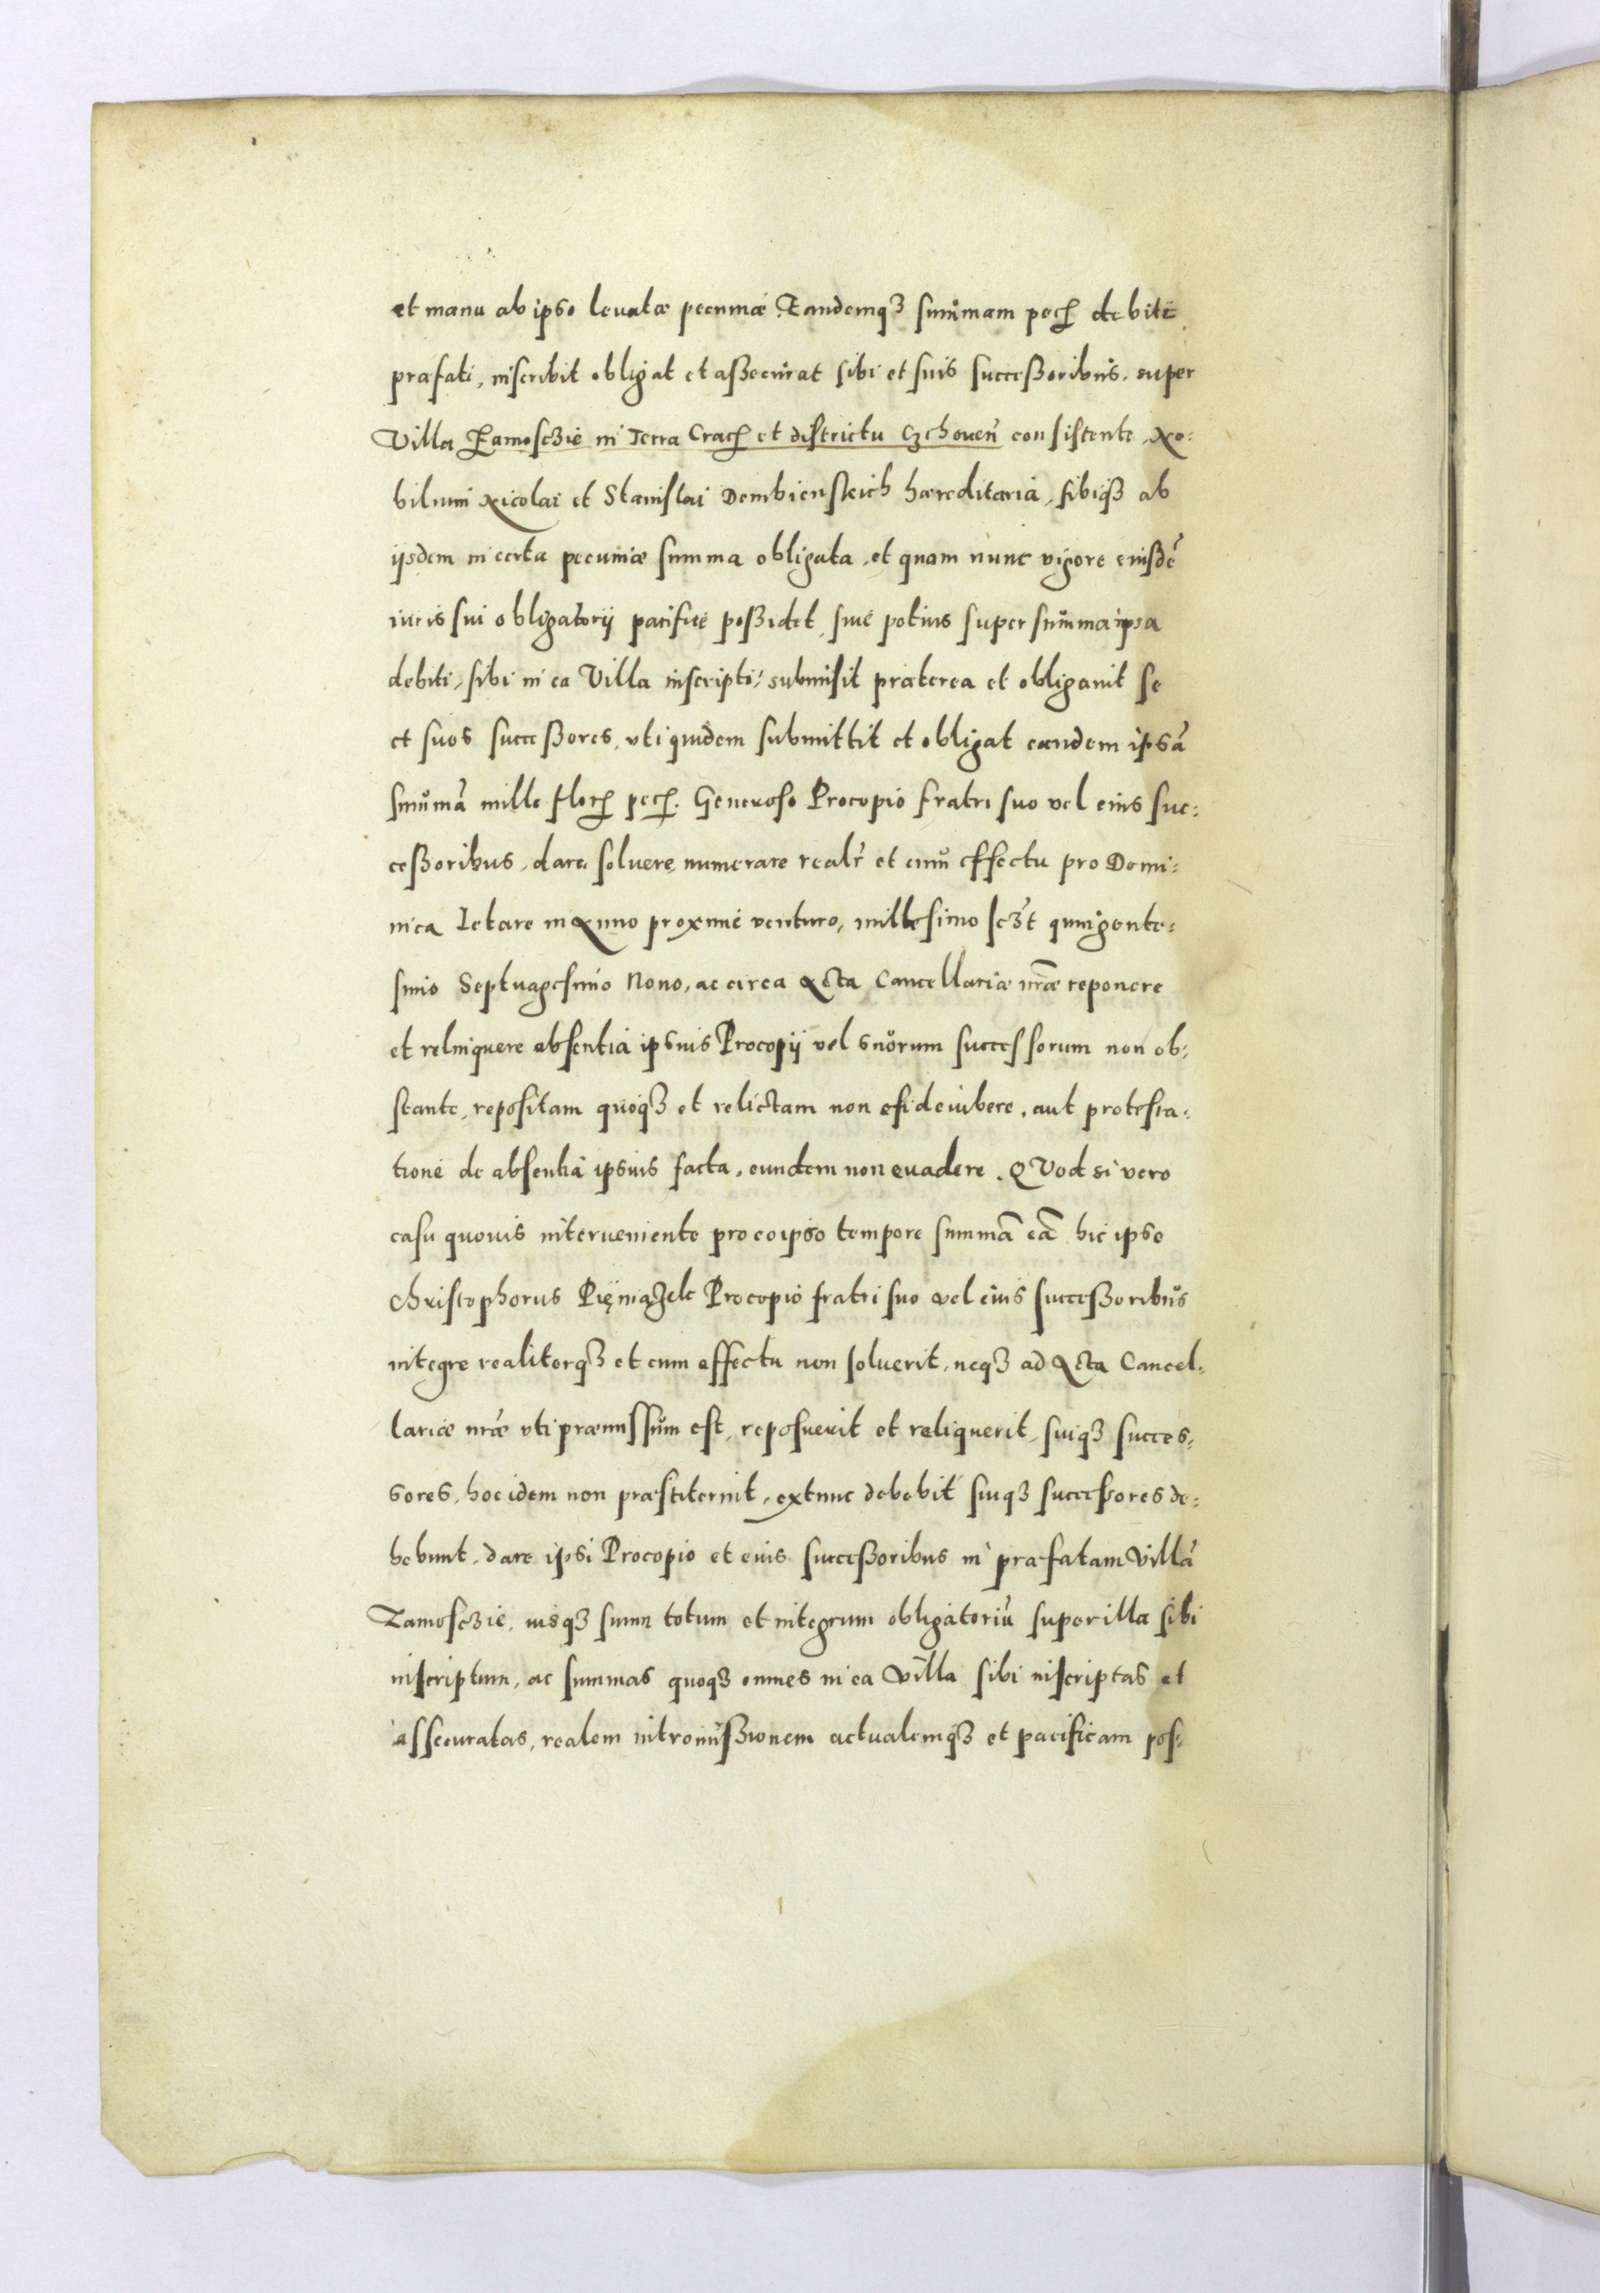 et manu ab ipso leuatæ pecuniæ. Eandemqʒ sum̃mam pecꝭ debiti
præfati, inscribit obligat et aßecurat sibi et suis succeßoribus, super
Villa Zamosczie in Terra Cracꝭ et districtu Czchouen̄ consistente, No:
bilium Nicolai et Stanislai Dembienskich hæreditaria, sibiqʒ ab
ijsdem in certa pecuniæ summa obligata, et quam nunc vigore eiusdē
iuris sui obligatorij pacificè poßidet, siue potius super summa ipsa
debiti, sibi in ea Villa inscripti, submisit præterea et obligauit se
et suos succeßores, vti quidem submittit et obligat eandem ipsā
sum̃mā mille florꝭ pecꝭ. Generoso Procopio fratri suo vel eius suc:
ceßoribus, dare, soluere, numerare realr̄ et cum effectu pro Domi:
nica Letare in Anno proximè venturo, millesimo scʒt quingente:
simo Septuagesimo Nono, ac circa Acta Cancellariæ nr̄æ reponere
et relinquere absentia ipsius Procopij vel suorum successorum non ob:
stante, repositam quoqʒ et relictam non efideiubere, aut protesta:
tione de absentia ipsius facta, eundem non euadere. QVod si vero
casu quouis interueniente pro eo ipso tempore summā eā hic ipse
Christophorus Pięniążek Procopio fratri suo vel eius succeßoribus
integre realiterqʒ et cum effectu non soluerit, neqʒ ad Acta Cancel:
lariæ nr̄æ vti præmissum est, reposuerit et reliquerit, suiqʒ succes:
sores, hoc idem non præstiterint, extunc debebit suiqʒ successores de:
bebunt, dare ipsi Procopio et eius succeßoribus in præfatam Villā
Zamosczie, iusqʒ suum totum et integrum obligatoriū super illa sibi
inscriptum, ac summas quoqʒ omnes in ea Villa sibi inscriptas et
assecuratas, realem intromißionem actualemqʒ et pacificam pos: